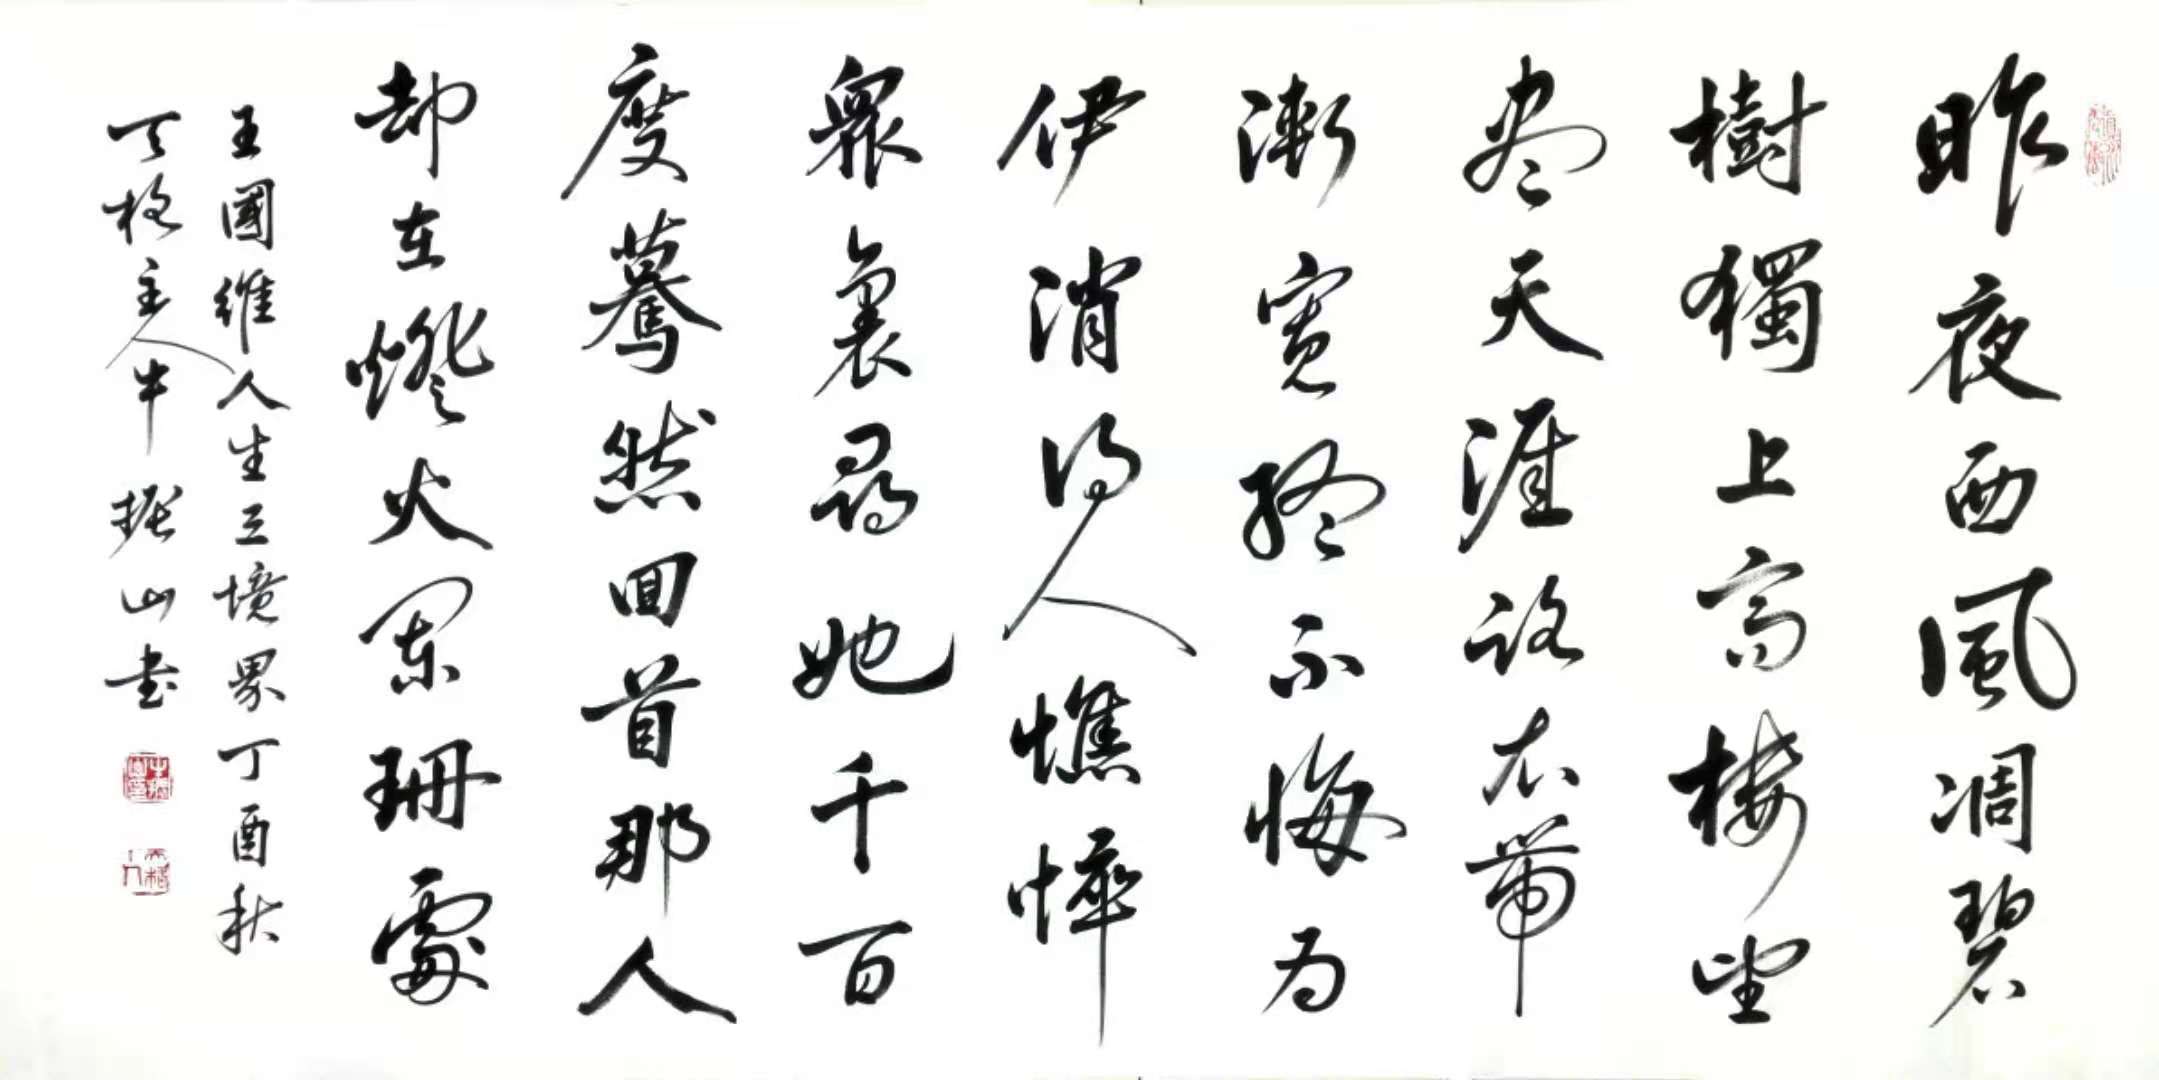 昨夜西風凋碧
樹獨上高樓望
尽天涯路衣帶
漸寬終不悔為
伊消得人憔悴
衆裏尋她千百
度驀然回首那
人却在燈火闌珊處
王國維人生三境界丁酉秋
天格主人牛振山书